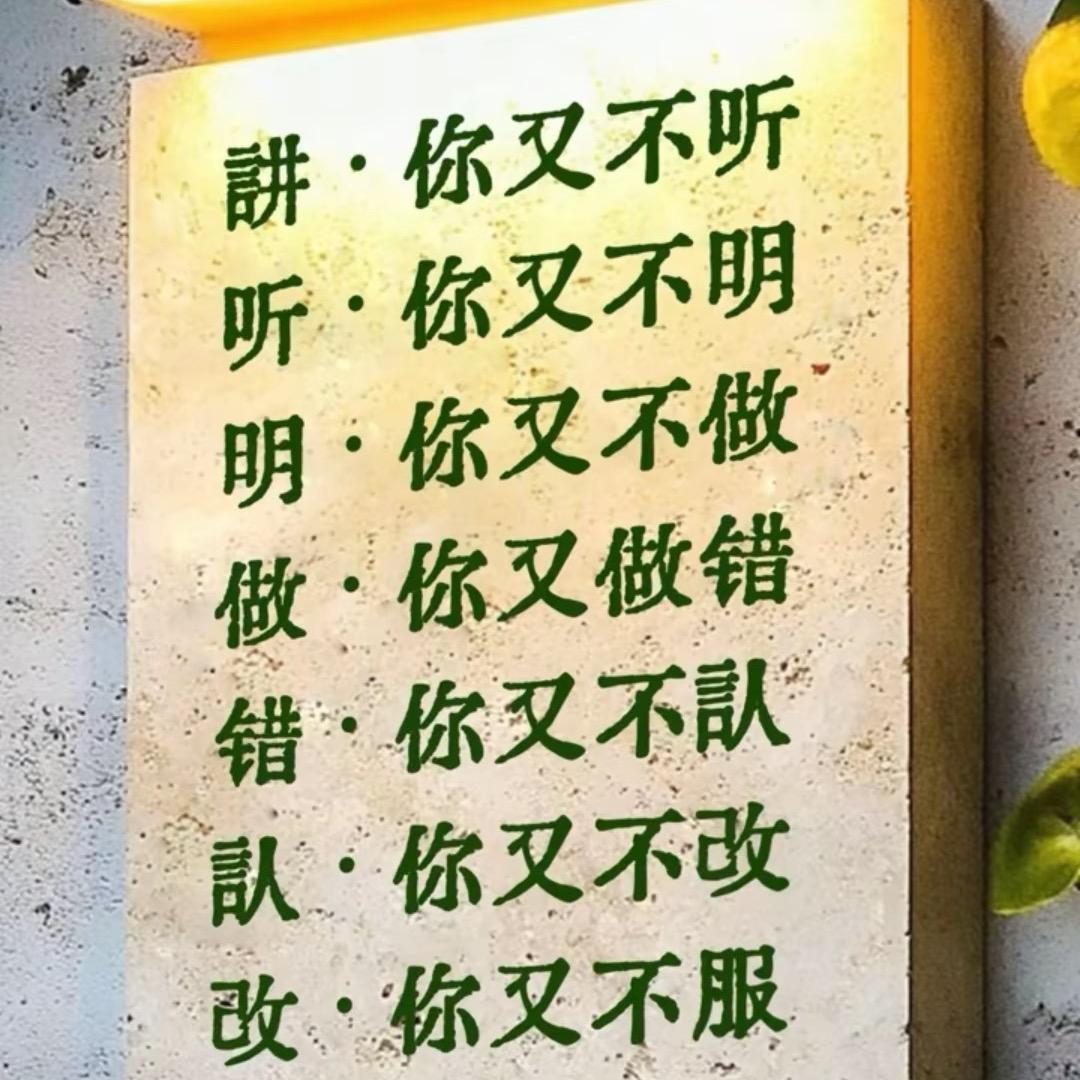 讲·你又不听
听·你又不明
明·你又不做
做·你又做错
错·你又不認
認·你又不改
改·你又不服